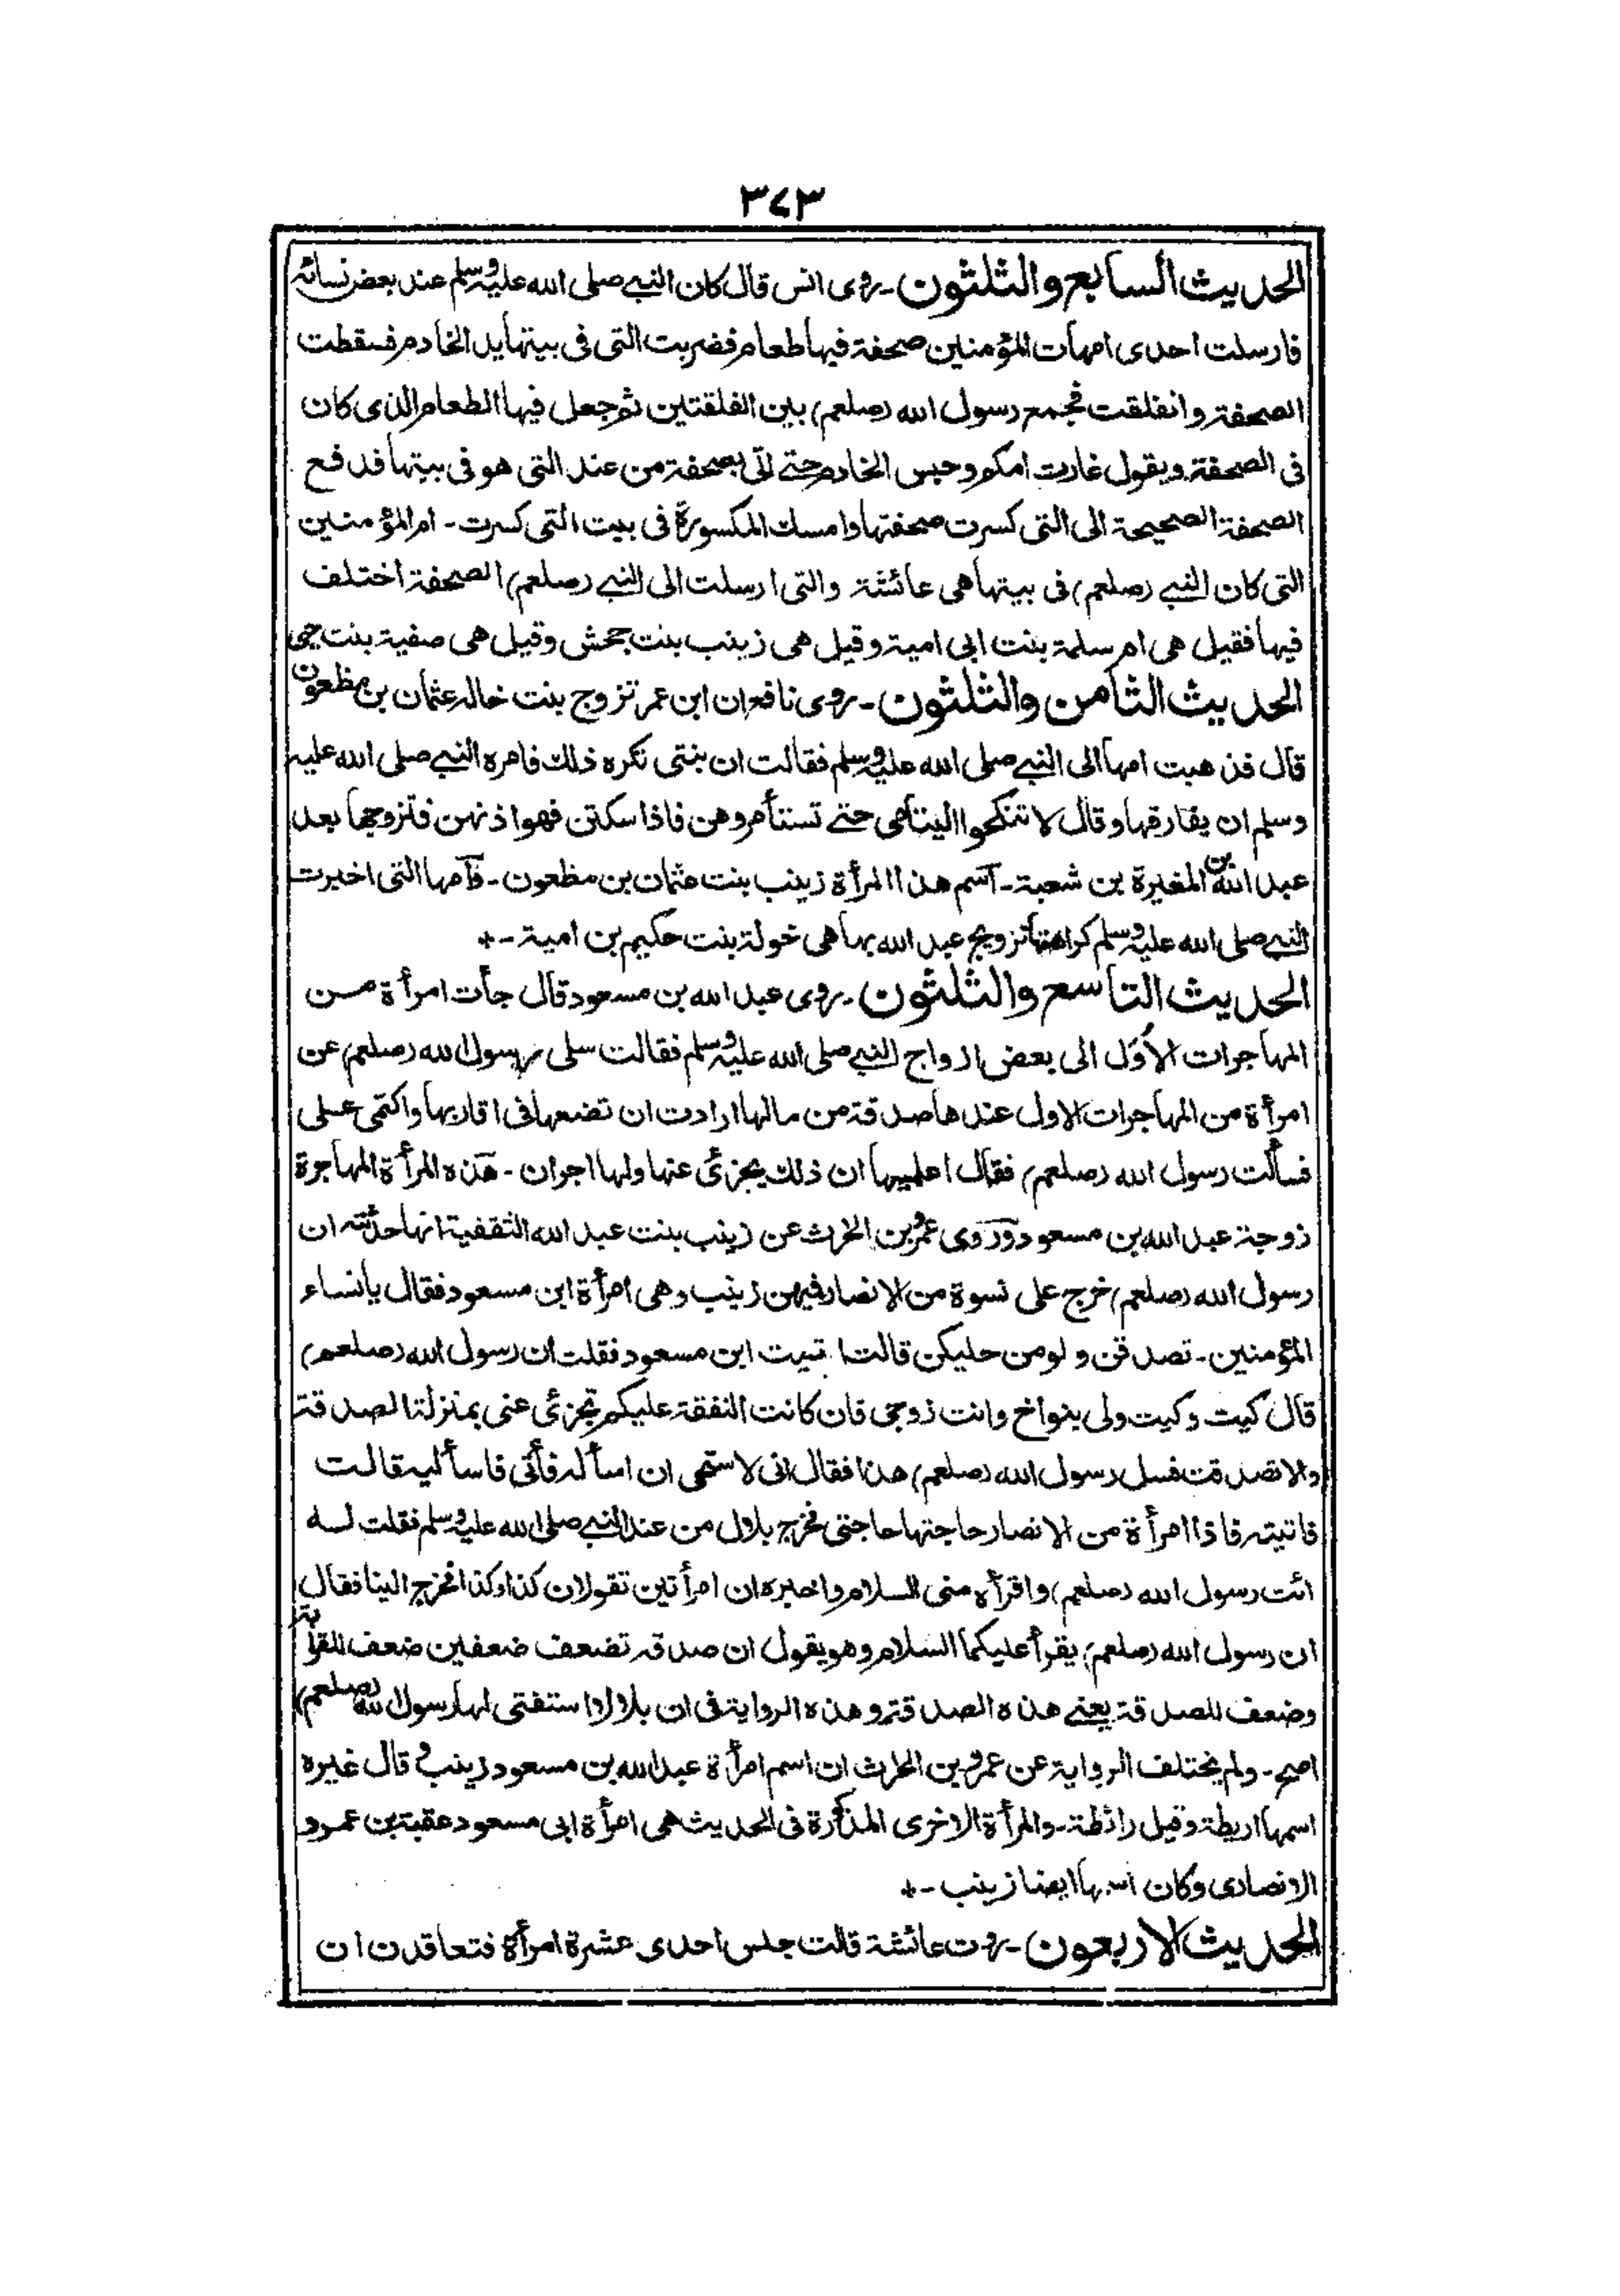 ٣٧٣
الحديث السابع والثلثون۔ روى انس قال كان النبي صلى الله عليه وسلم عند بعض نسائه
فارسلت احدى امهات المؤمنين صحفة فيها طعام فضربت التى فى بيتها يد الخادم فسقطت
الصحفة وانفلقت فجمع رسول الله (صلعم) بين الفلقتين ثم جعل فيها الطعام الذى كان
فى الصحفة ويقول غارت امكم وحبس الخادم حتى اتى بصحفة من عند التى هو فى بيتها فدفع
الصحفة الصحيحة الى التى كسرت صحفتها وامسك المكسورة فى بيت التى كسرت - ام المؤمنين
التى كان النبي (صلعم) فى بيتها هى عائشة والتى ارسلت الى النبي (صلعم) الصحفة اختلف
فيها فقيل هى ام سلمة بنت ابى امية وقيل هى زينب بنت جحش وقيل هى صفية بنت حيى
الحديث الثامن والثلثون۔ روى نافع ان ابن عمر تزوج بنت خاله عثمان بن مظعون
قال فذهبت امها الى النبي صلى الله عليه وسلم فقالت ان بنتى تكره ذلك فامره النبي صلى الله عليه
وسلم ان يفارقها وقال لا تنكحوا اليتامى حتى تستأمروهن فاذا سكتن فهو اذنهن فتزوجها بعد
عبد الله بن المغيرة بن شعبة - اسم هذا المرأة زينب بنت عثمان بن مظعون - وامها التى اخبرت
النبي صلى الله عليه وسلم كراهتها تزويج عبد الله بها هى خولة بنت حكيم بن امية -*
الحديث التاسع والثلثون۔ روى عبد الله بن مسعود قال جأت امرأة من
المهاجرات الأول الى بعض ازواج النبي صلى الله عليه وسلم فقالت سلى رسول الله (صلعم) عن
امرأة من المهاجرات الاول عندها صدقة من مالها ارادت ان تضعها فى اقاربها واكتمى على
فسألت رسول الله (صلعم) فقال اعلميها ان ذلك يجزئ عنها ولها اجران - هذه المرأة المهاجرة
زوجة عبد الله بن مسعود وروى عمرو بن الحرث عن زينب بنت عبد الله الثقفية انها حدثته ان
رسول الله (صلعم) خرج على نسوة من الانصار فيهن زينب وهى امرأة ابن مسعود فقال يا نساء
المؤمنين - تصدقن ولو من حليكن قالت اتيت ابن مسعود فقلت ان رسول الله (صلعم)
قال كيت وكيت ولى بنواخ وانت زوجى فان كانت النفقة عليكم تجزئ عنى بمنزلة الصدقة
والا تصدقت فسل رسول الله (صلعم) هذا فقال انى لاستحى ان اسأله فأتى فاسأليه قالت
فاتيته فاذا امرأة من الانصار حاجتها حاجتى فخرج بلال من عند النبي صلى الله عليه وسلم فقلت له
ائت رسول الله (صلعم) واقرأه منى السلام واخبره ان امرأتين تقولان كذا وكذا فخرج الينا فقال
ان رسول الله (صلعم) يقرأ عليكما السلام وهو يقول ان صدقه تضعف ضعفين ضعف للقرابة
وضعف للصدقة يعنى هذه الصدقة وهذه الرواية فى ان بلالا استفتى لها رسول الله (صلعم)
اصح - ولم يختلف الرواية عن عمرو بن الحرث ان اسم امرأة عبد الله بن مسعود زينب وقال غيره
اسمها اريطة وقيل رائطة - والمرأة الاخرى المذكورة فى الحديث هى امرأة ابى مسعود عقبة بن عمرو
الانصارى وكان اسمها ايضا زينب -*
الحديث الاربعون۔ روت عائشة قالت جلس احدى عشرة امرأة فتعاقدن ان